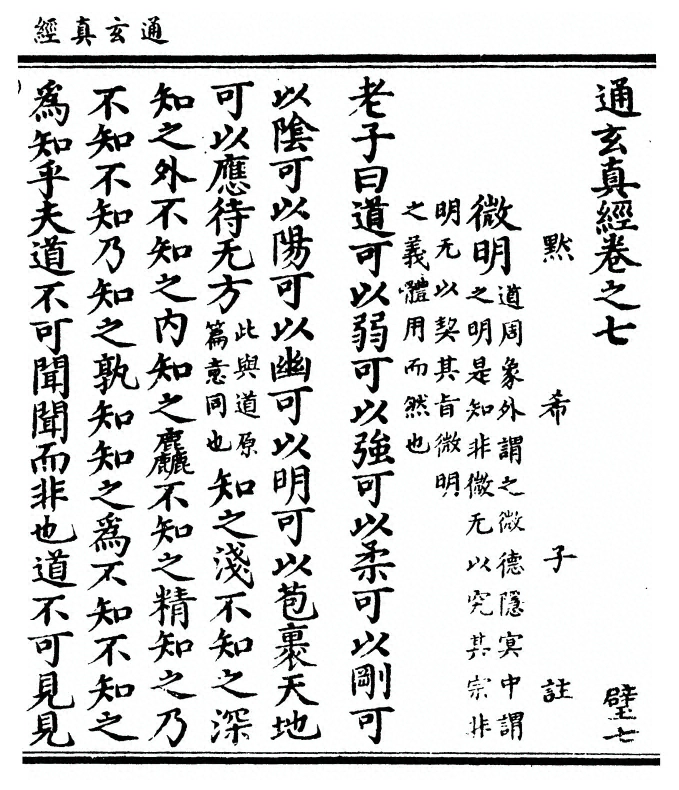 通玄真經
通玄真經卷之七 璧七
默希子註
微明道周象外謂之微德隱冥中謂
之明是知非微无以究其宗非
明无以契其旨微明
之義體用而然也
老子曰道可以弱可以強可以柔可以剛可
以陰可以陽可以幽可以明可以苞裹天地
可以應待无方此與道原篇意同也知之淺不知之深
知之外不知之内知之麤不知之精知之乃
不知不知乃知之孰知知之爲不知不知之
爲知乎夫道不可聞聞而非也道不可見見